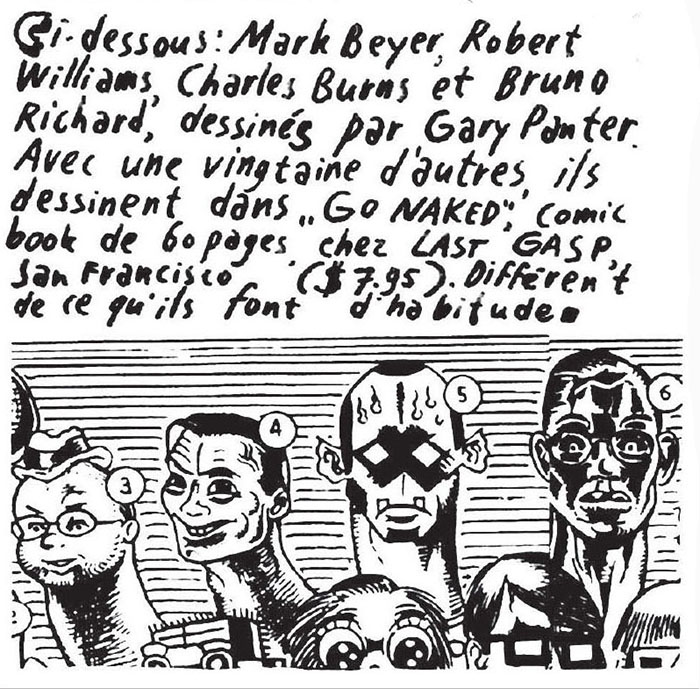 Ci-dessous: Mark Beyer, Robert
Williams, Charles Burns et Bruno
Richard, dessinés par Gary Panter.
Avec une vingtaine d'autres, ils
dessinent dans „Go NAKED", comic
book de 60 pages chez LAST GASP,
San Francisco ($7.95). Différen't
de ce qu'ils font d'habitude.
3
4
5
6